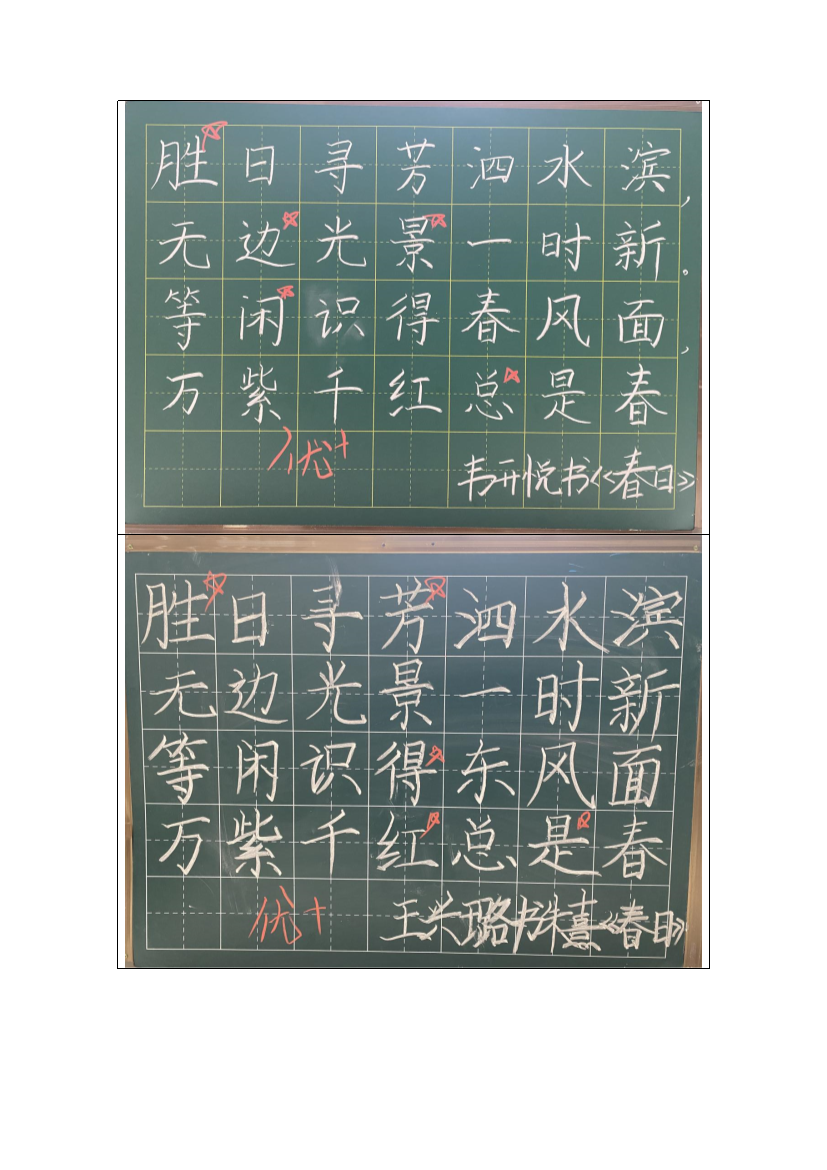 胜日寻芳泗水滨，
无边光景一时新。
等闲识得春风面，
万紫千红总是春
优+
韦开悦书《春日》
胜日寻芳泗水滨
无边光景一时新
等闲识得东风面
万紫千红总是春
优+
王兴璐书朱熹《春日》